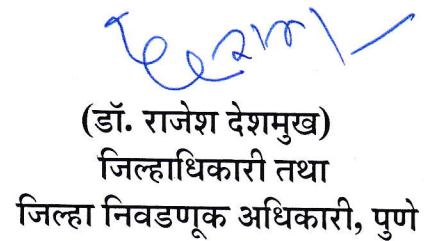 (डॉ. राजेश देशमुख)
जिल्हाधिकारी तथा
जिल्हा निवडणूक अधिकारी, पुणे